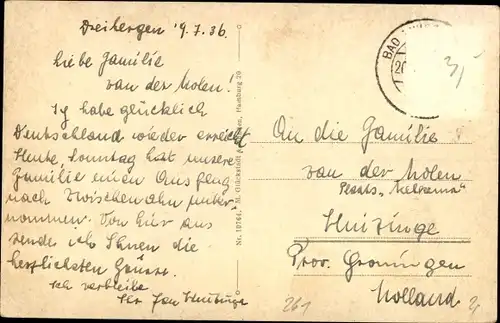 Dreibergen 19.7.36
Liebe Familie
van der Molen!
Ich habe glücklich
Deutschland wieder erreicht
Heute, Sonntag hat unsere
Familie einen Ausflug
nach Zwischenahn unter-
nommen. Von hier aus
sende ich Ihnen die
herzlichsten Grüsse.
Ich verbleibe
Ihr Jan Huizinga
Nr. 10764. M. Glückstadt & Hamburg 20
BAD
20
3/
An die Familie
van der Molen
Plaats
Huizinge
Prov. Groningen
Holland
261